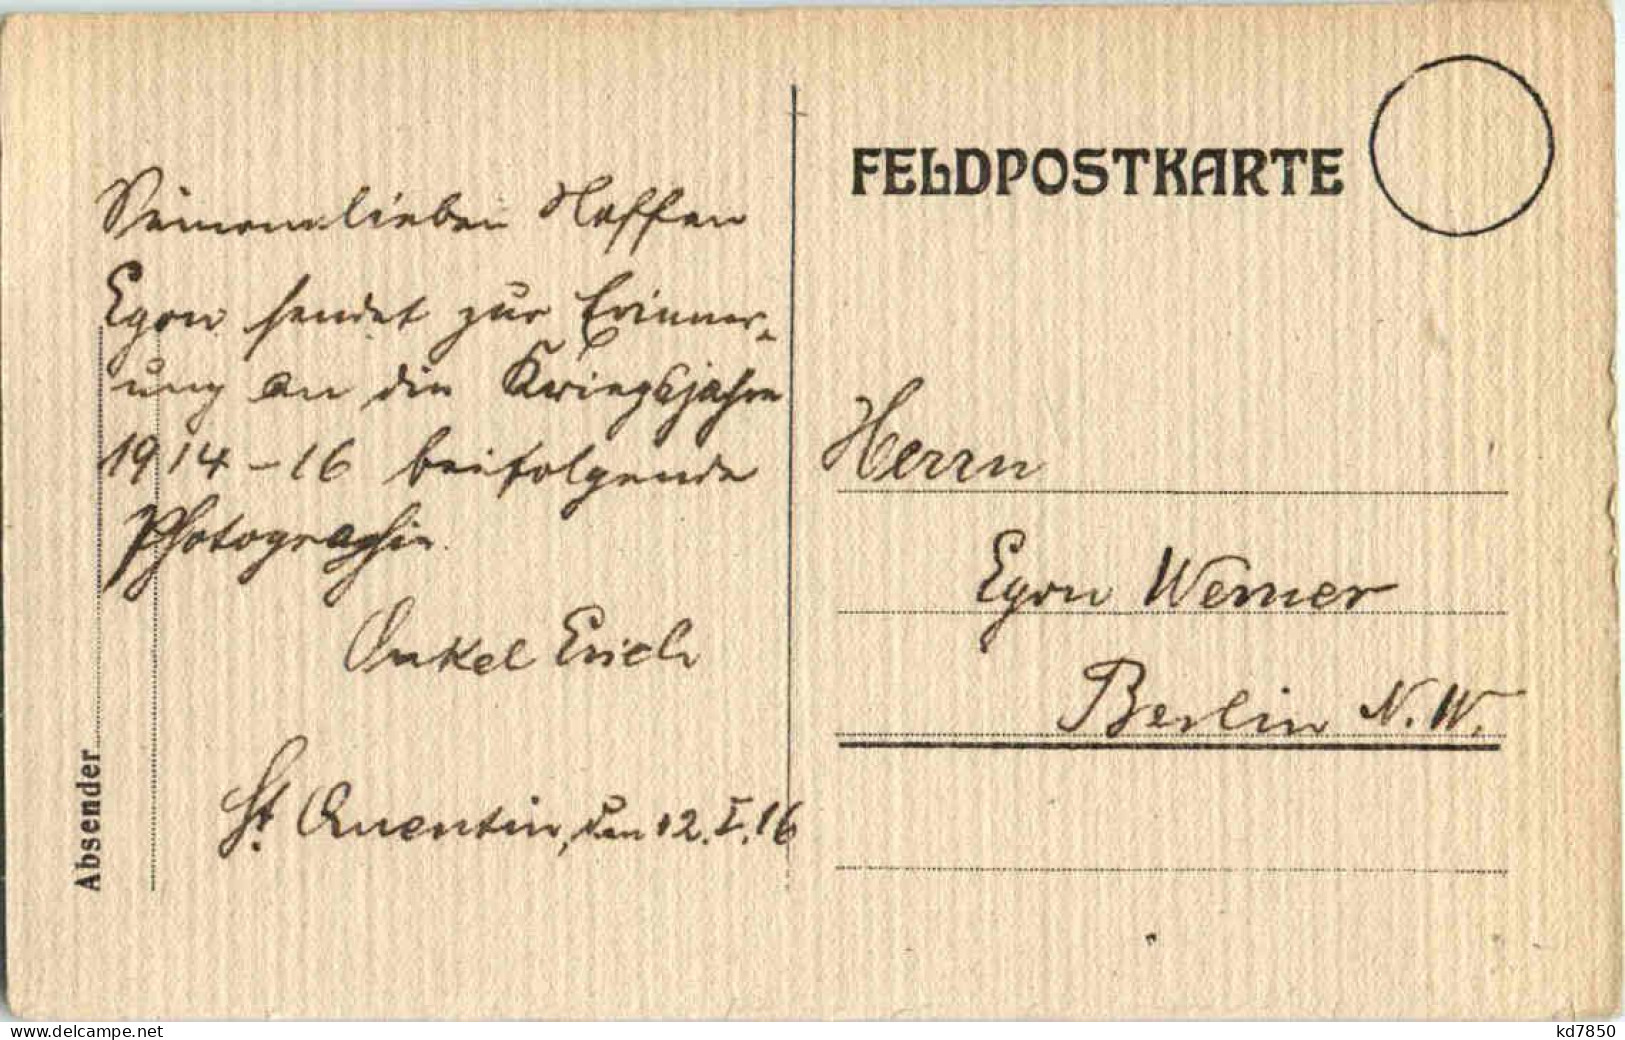 Seinem lieben Neffen
Egon sendet zur Erinner-
ung an die Kriegsjahre
1914-16 beifolgende
Photographie
Onkel Erich
St. Quentin, den 12.I.16
Absender
FELDPOSTKARTE
Herrn
Egon Werner
Berlin N.W.
delcampe.net
kd7850